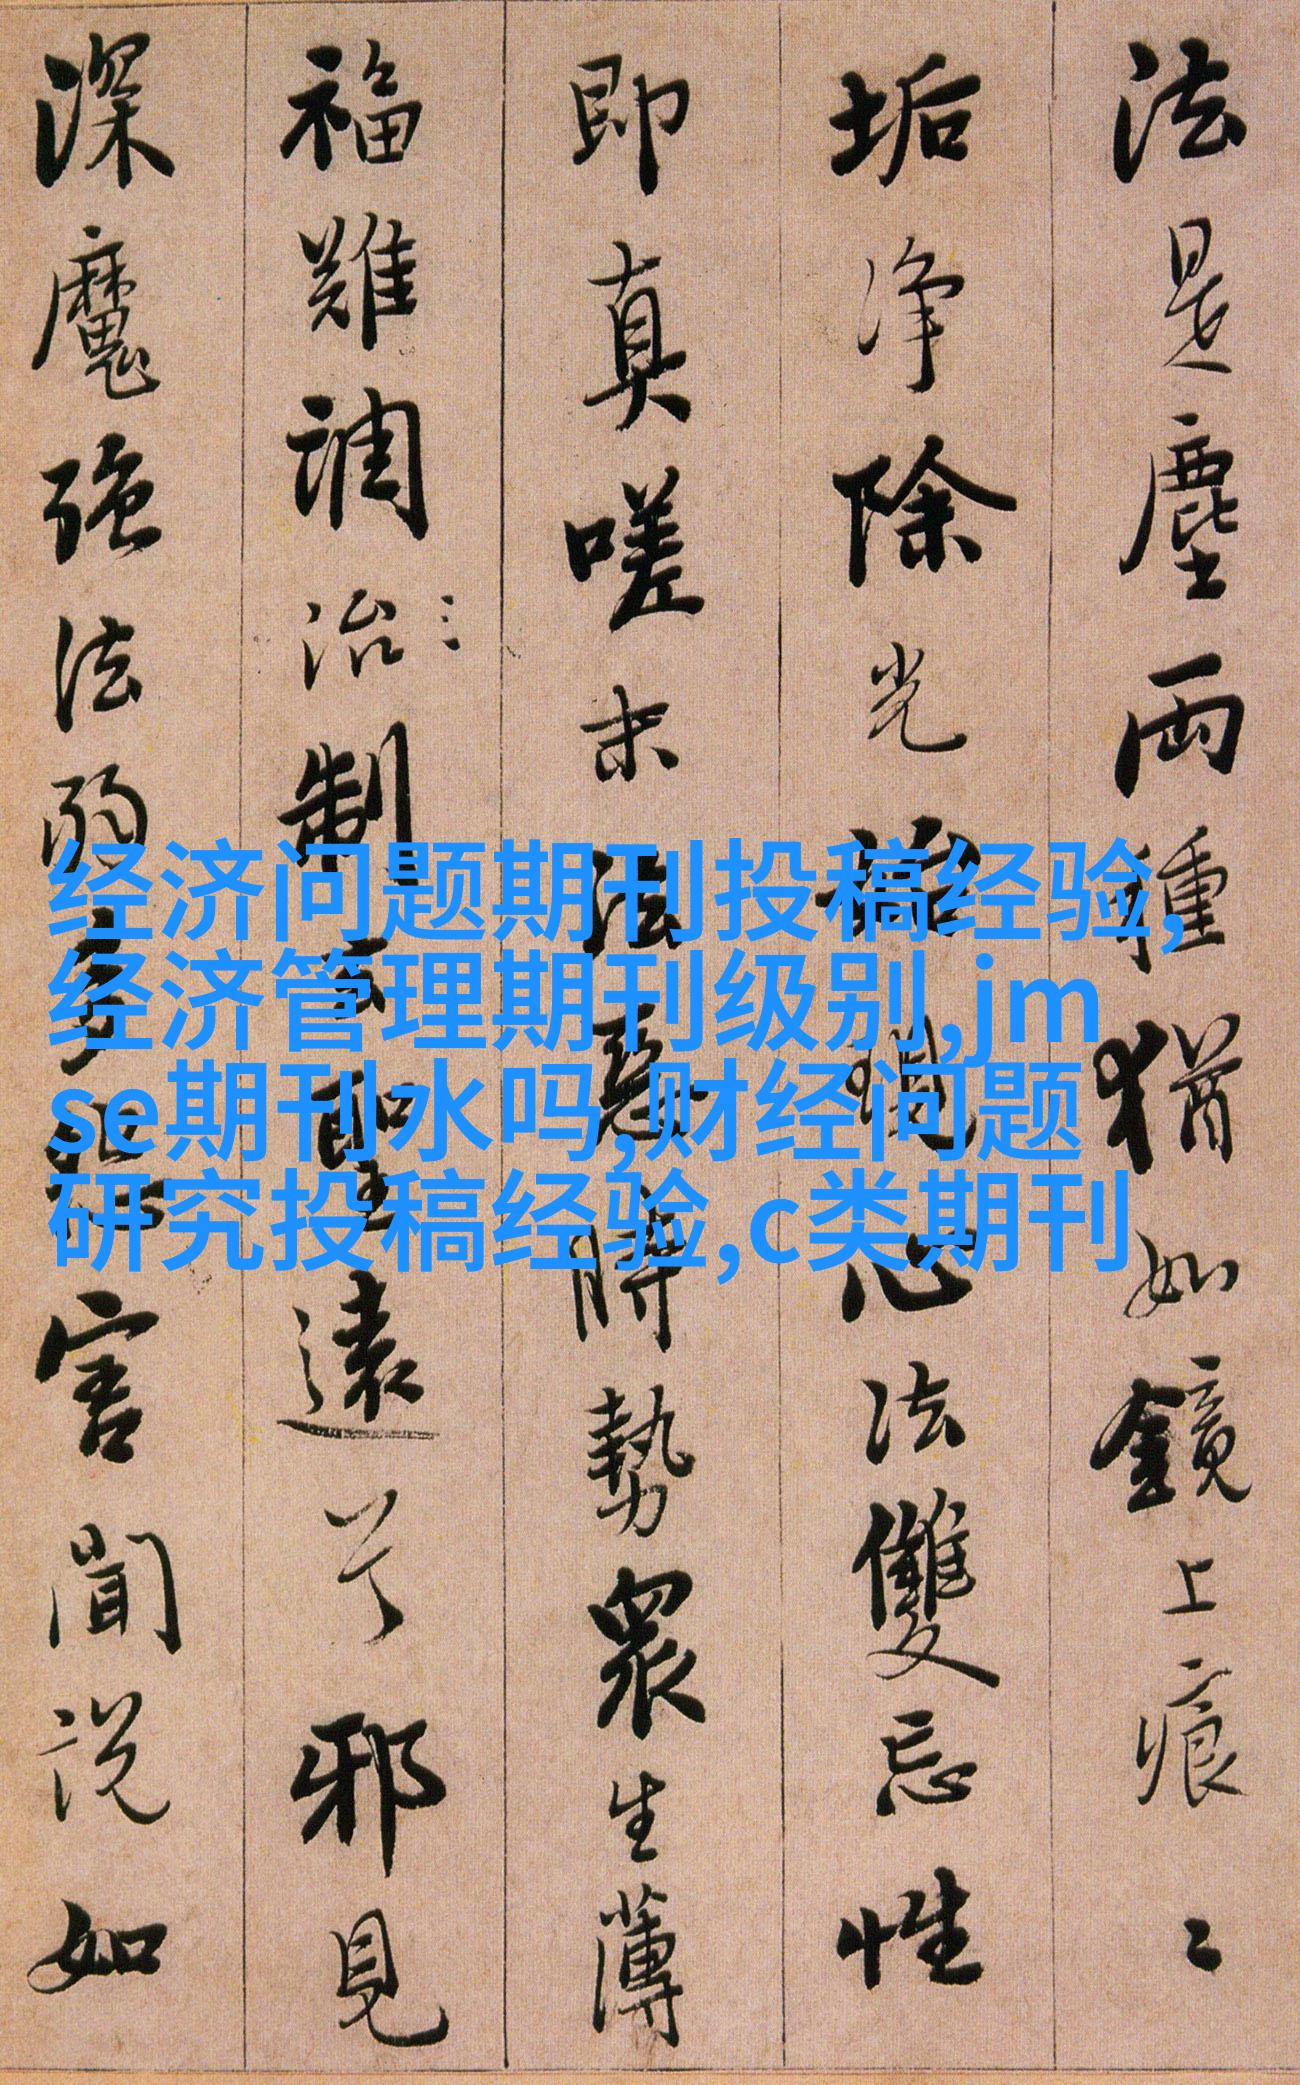 法是塵兩種猶如鏡上痕々
垢净除光始現心法雙忘性
即真嗟末法惡時勢衆生薄
福難調治制去聖遠兮邪見
深魔強法弱多害聞説如
经济问题期刊投稿经验,
经济管理期刊级别,jm
se期刊水吗,财经问题
研究投稿经验,c类期刊